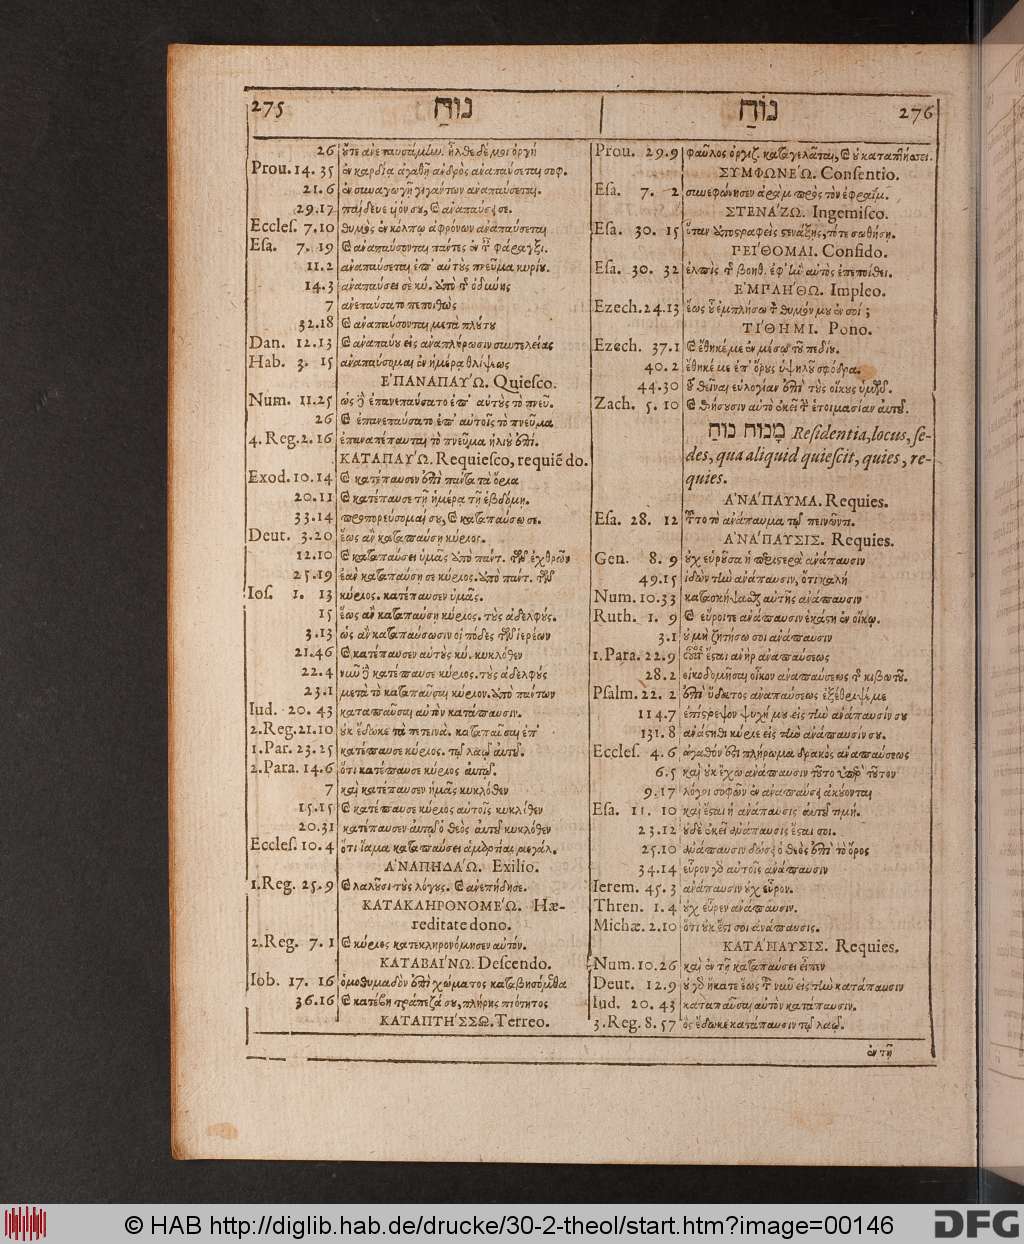 275 נוּחַ נוֹחַ 276
26 οὔτε ἀνεπαυσάμην. ἦλθε δέ μοι ὀργή
Prou. 14. 35 ἐν καρδίᾳ ἀγαθῇ ἀνδρὸς ἀναπαύσεται σοφ.
21. 6 ἐν συναγωγῇ γιγάντων ἀναπαύσεται.
29. 17 παίδευε υἱόν σου, καὶ ἀναπαύσῃ σε.
Eccles. 7. 10 θυμὸς ἐν κόλπῳ ἀφρόνων ἀναπαύσεται
Esa. 7. 19 καὶ ἀναπαύσονται πάντες ἐν τ φάραγξι.
11. 2 ἀναπαύσεται ἐπ' αὐτοὺς πνεῦμα κυρίου.
14. 3 ἀναπαύσει σὲ κύ. ἀπὸ τ ὀδύνης
7 ἀνεπαύσατο πεποιθὼς
32. 18 καὶ ἀναπαύσονται μετὰ πλούτου
Dan. 12. 13 καὶ ἀναπαύου εἰς ἀναπλήρωσιν συντελείας
Hab. 3. 15 ἀναπαύσομαι ἐν ἡμέρᾳ θλίψεως
ΕΠΑΝΑΠΑΥΏ. Quiesco.
Num. 11. 25 ὡς δὲ ἐπανεπαύσατο ἐπ' αὐτοὺς τὸ πνεῦ.
26 καὶ ἐπανεπαύσατο ἐπ' αὐτοῖς τὸ πνεῦμα
4. Reg. 2. 16 ἐπαναπέπαυται τὸ πνεῦμα ἡλιοὺ ἐπί.
ΚΑΤΑΠΑΥΏ. Requiesco, requiē do.
Exod. 10. 14 καὶ κατέπαυσεν ἐπὶ πάντα τὰ ὅρια
20. 11 καὶ κατέπαυσε τῇ ἡμέρᾳ τῇ ἑβδόμῃ.
33. 14 προπορεύσομαί σου, καὶ καταπαύσω σε.
Deut. 3. 20 ἕως ἂν καταπαύσῃ κύριος.
12. 10 καὶ καταπαύσει ὑμᾶς ἀπὸ πάντ. τῶν ἐχθρῶν
25. 19 ἐὰν καταπαύσῃ σε κύριος. ἀπὸ πάντ. τῶν
Ios. 1. 13 κύριος. κατέπαυσεν ὑμᾶς.
15 ἕως ἂν καταπαύσῃ κύριος. τοὺς ἀδελφούς.
3. 13 ὡς ἂν καταπαύσωσιν οἱ πόδες τῶν ἱερέων
21. 46 καὶ κατέπαυσεν αὐτοὺς κύ. κυκλόθεν
22. 4 νῦν δὲ κατέπαυσε κύριος. τοὺς ἀδελφοὺς
23. 1 μετὰ τὸ καταπαῦσαι κύριον. ἀπὸ πάντων
Iud. 20. 43 καταπαῦσαι αὐτὸν κατάπαυσιν.
2. Reg. 21. 10 οὐκ ἔδωκε τὰ πετεινὰ. καταπαῦσαι ἐπ'
1. Par. 23. 25 κατέπαυσε κύριος. τῷ λαῷ αὐτοῦ.
2. Para. 14. 6 ὅτι κατέπαυσε κύριος αὐτῷ.
7 καὶ κατέπαυσεν ἡμᾶς κυκλόθεν
15. 15 καὶ κατέπαυσε κύριος αὐτοῖς κυκλόθεν
20. 31 κατέπαυσεν αὐτῷ ὁ θεὸς αὐτοῦ κυκλόθεν
Eccles. 10. 4 ὅτι ἴαμα καταπαύσει ἁμαρτίας μεγάλ.
ΑΝΑΠΗΔΆΩ. Exilio.
1. Reg. 25. 9 καὶ λαλοῦσι τοὺς λόγους. καὶ ἀνεπήδησε.
ΚΑΤΑΚΛΗΡΟΝΟΜΕΏ. Hæ-
reditate dono.
2. Reg. 7. 1 καὶ κύριος κατεκληρονόμησεν αὐτόν.
ΚΑΤΑΒΑΊΝΩ. Descendo.
Iob. 17. 16 ὁμοθυμαδὸν ἐπὶ χώματος καταβησόμεθα
36. 16 καὶ κατέβη τράπεζά σου, πλήρης πιότητος
ΚΑΤΑΠΤΗΣΣΩ. Terreo.
Prou. 29. 9 φαῦλος ὀργιζ. καταγελᾶται, καὶ οὐ καταπτήσσει.
ΣΥΜΦΩΝΕΏ. Consentio.
Esa. 7. 2 συνεφώνησεν ἀρὰμ πρὸς τὸν ἐφραΐμ.
ΣΤΕΝΆΖΩ. Ingemisco.
Esa. 30. 15 ὅταν ἀποστραφεὶς στενάξῃς, τότε σωθήσῃ.
ΠΕΙΘΟΜΑΙ. Confido.
Esa. 30. 32 ἐλπὶς τ βοηθ. ἐφ' ᾗ αὐτὸς ἐπεποίθει.
ΕΜΠΛΗΘΩ. Impleo.
Ezech. 24. 13 ἕως οὗ ἐμπλήσω τ θυμόν μου ἐν σοί ;
ΤΙΘΗΜΙ. Pono.
Ezech. 37. 1 καὶ ἔθηκέ με ἐν μέσῳ τοῦ πεδίου.
40. 2 ἔθηκέ με ἐπ' ὄρους ὑψηλοῦ σφόδρα.
44. 30 τοῦ θεῖναι εὐλογίαν ἐπὶ τοὺς οἴκους ὑμῶν.
Zach. 5. 10 καὶ θήσουσιν αὐτὸ ἐκεῖ τ ἑτοιμασίαν αὐτοῦ.
מָנוֹחַ נוֹחַ Residentia, locus, se-
des, qua aliquid quiescit, quies, re-
quies.
ΑΝΑΠΑΥΜΑ. Requies.
Esa. 28. 12 τοῦτο τὸ ἀνάπαυμα τῷ πεινῶντι.
ΑΝΑΠΑΥΣΙΣ. Requies.
Gen. 8. 9 οὐχ εὑροῦσα ἡ περιστερὰ ἀνάπαυσιν
49. 15 ἰδὼν τὴν ἀνάπαυσιν, ὅτι καλή
Num. 10. 33 κατασκέψασθαι αὐτῆς ἀνάπαυσιν
Ruth. 1. 9 καὶ εὕροιτε ἀνάπαυσιν ἑκάστη ἐν οἴκῳ.
3. 1 οὐ μὴ ζητήσω σοι ἀνάπαυσιν
1. Para. 22. 9 οὗτος ἔσται ἀνὴρ ἀναπαύσεως
28. 2 οἰκοδομῆσαι οἶκον ἀναπαύσεως τ κιβωτοῦ.
Psalm. 22. 2 ἐπὶ ὕδατος ἀναπαύσεως ἐξέθρεψέ με
114. 7 ἐπίστρεψον ψυχή μου εἰς τὴν ἀνάπαυσίν σου
131. 8 ἀνάστηθι κύριε εἰς τὴν ἀνάπαυσιν σου.
Eccles. 4. 6 ἀγαθὸν ἐστὶ πλήρωμα δρακὸς ἀναπαύσεως
6. 5 καὶ οὐκ ἔχω ἀνάπαυσιν τοῦτο ὑπὲρ τοῦτον
9. 17 λόγοι σοφῶν ἐν ἀναπαύσει ἀκούονται
Esa. 11. 10 καὶ ἔσται ἡ ἀνάπαυσις αὐτοῦ τιμή.
23. 12 οὐδὲ ἐκεῖ ἀνάπαυσις ἔσται σοι.
25. 10 ἀνάπαυσιν δώσει ὁ θεὸς ἐπὶ τὸ ὄρος
34. 14 εὗρον γὰρ αὐτοῖς ἀνάπαυσιν
Ierem. 45. 3 ἀνάπαυσιν οὐχ εὗρον.
Thren. 1. 4 οὐχ εὗρεν ἀνάπαυσιν.
Michæ. 2. 10 ὅτι οὐκ ἔστι σοι ἀνάπαυσις.
ΚΑΤΑΠΑΥΣΙΣ. Requies.
Num. 10. 26 καὶ ἐν τῇ καταπαύσει εἶπεν
Deut. 12. 9 οὐ γὰρ ἥκατε ἕως τ νῦν εἰς τὴν κατάπαυσιν
Iud. 20. 43 καταπαῦσαι αὐτὸν κατάπαυσιν.
3. Reg. 8. 57 ὃς ἔδωκε κατάπαυσιν τῷ λαῷ.
ἐν τῇ
© HAB http://diglib.hab.de/drucke/30-2-theol/start.htm?image=00146
DFG